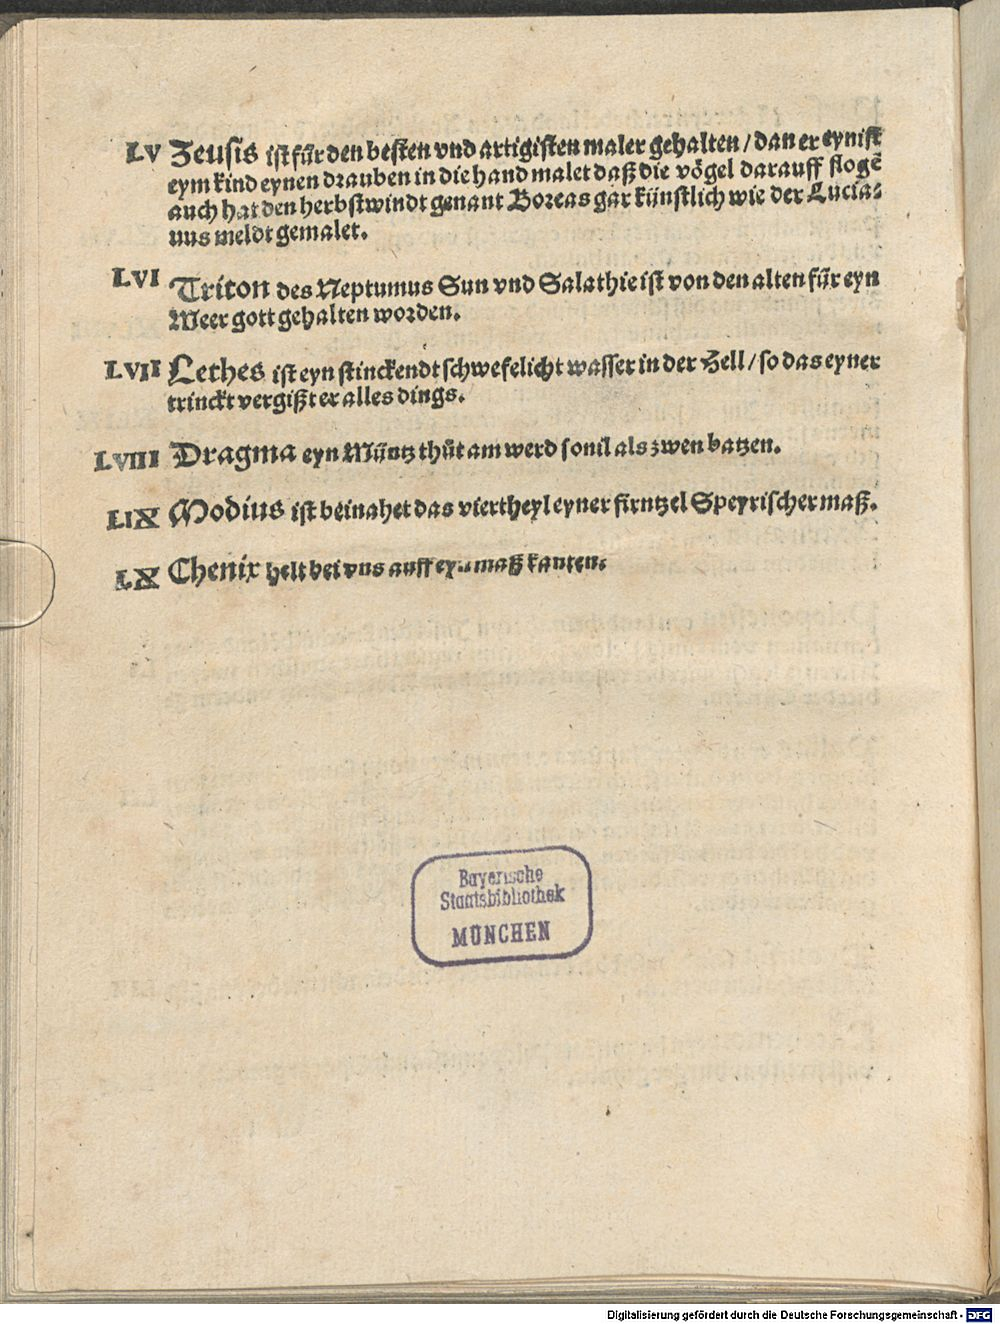 LV Zeusis ist für den besten vnd artigisten maler gehalten / dan er eynist
eym kind eynen drauben in die hand malet daß die vögel darauff flogē
auch hat den herbstwindt genant Boreas gar künstlich wie der Lucia-
nus meldt gemalet.
LVI Triton des Neptumus Sun vnd Salathie ist von den alten für eyn
Meer gott gehalten worden.
LVII Lethes ist eyn stinckendt schwefelicht wasser in der Hell / so das eyner
trinckt vergißt er alles dings.
LVIII Dragma eyn Müntz thůt am werd souil als zwen batzen.
LIX Modius ist beinahet das viertheyl eyner firntzel Speyrischer maß.
LX Chenix helt bei vns auff eyn maß kanten.
Bayerische
Staatsbibliothek
MÜNCHEN
Digitalisierung gefördert durch die Deutsche Forschungsgemeinschaft - DFG